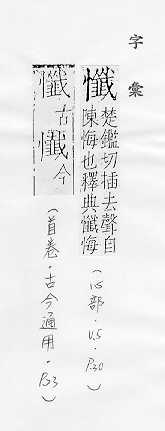 字彙
懺 楚鑑切攙去聲自
陳悔也釋典懺悔
(心部·U5·P.30)
懺 古 懺 今
(首卷·古今通用·P.33)